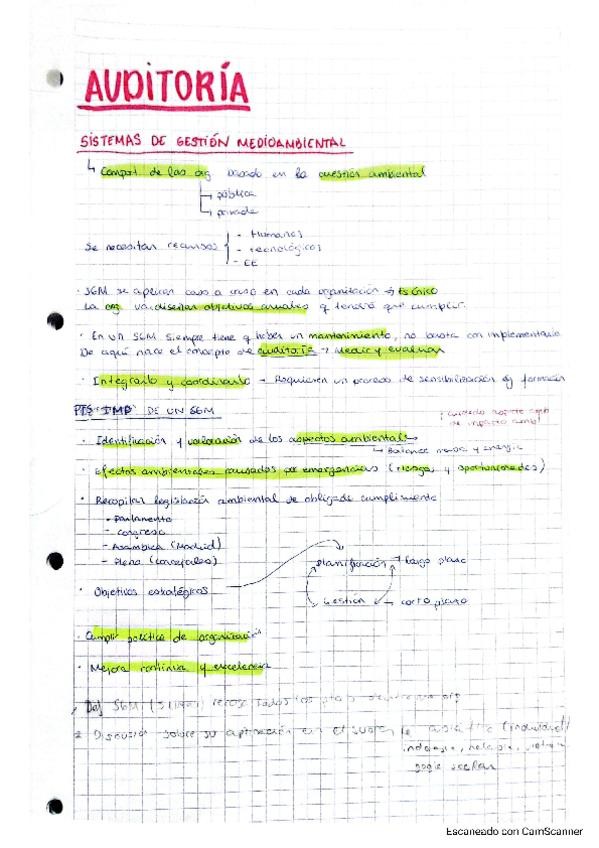 AUDITORÍA
SISTEMAS DE GESTIÓN MEDIOAMBIENTAL
Comport de las org basado en la cuestión ambiental
pública
privada
Se necesitan recursos
- Humanos
- tecnológicos
- EE
· SGM se aplican caso a caso en cada organización → ES ÚNICO
La org va diseñar objetivos anuales q tendrá que cumplir.
· En un SGM siempre tiene q haber un mantenimiento, no basta con implementarlo
De aquí nace el concepto de auditoría → Medir y evaluar
· Integrarlo y coordinarlo - Requieren un proceso de sensibilización y formación
PTS IMP DE UN SGM
de impacto ambl
· Identificación y valoración de los aspectos ambientales
Balance masa y energía
· Efectos ambientales causados por emergencias (riesgos y oportunidades)
· Recopilar legislación ambiental de obligado cumplimiento
- Parlamento
- Congreso
- Asamblea (Madrid)
- Pleno (concejales)
Planificación → largo plazo
· Objetivos estratégicos
Gestión → corto plazo
· Cumplir política de organización
· Mejora continua y excelencia
SGM
2 Discusión sobre su aplicación en el
Escaneado con CamScanner